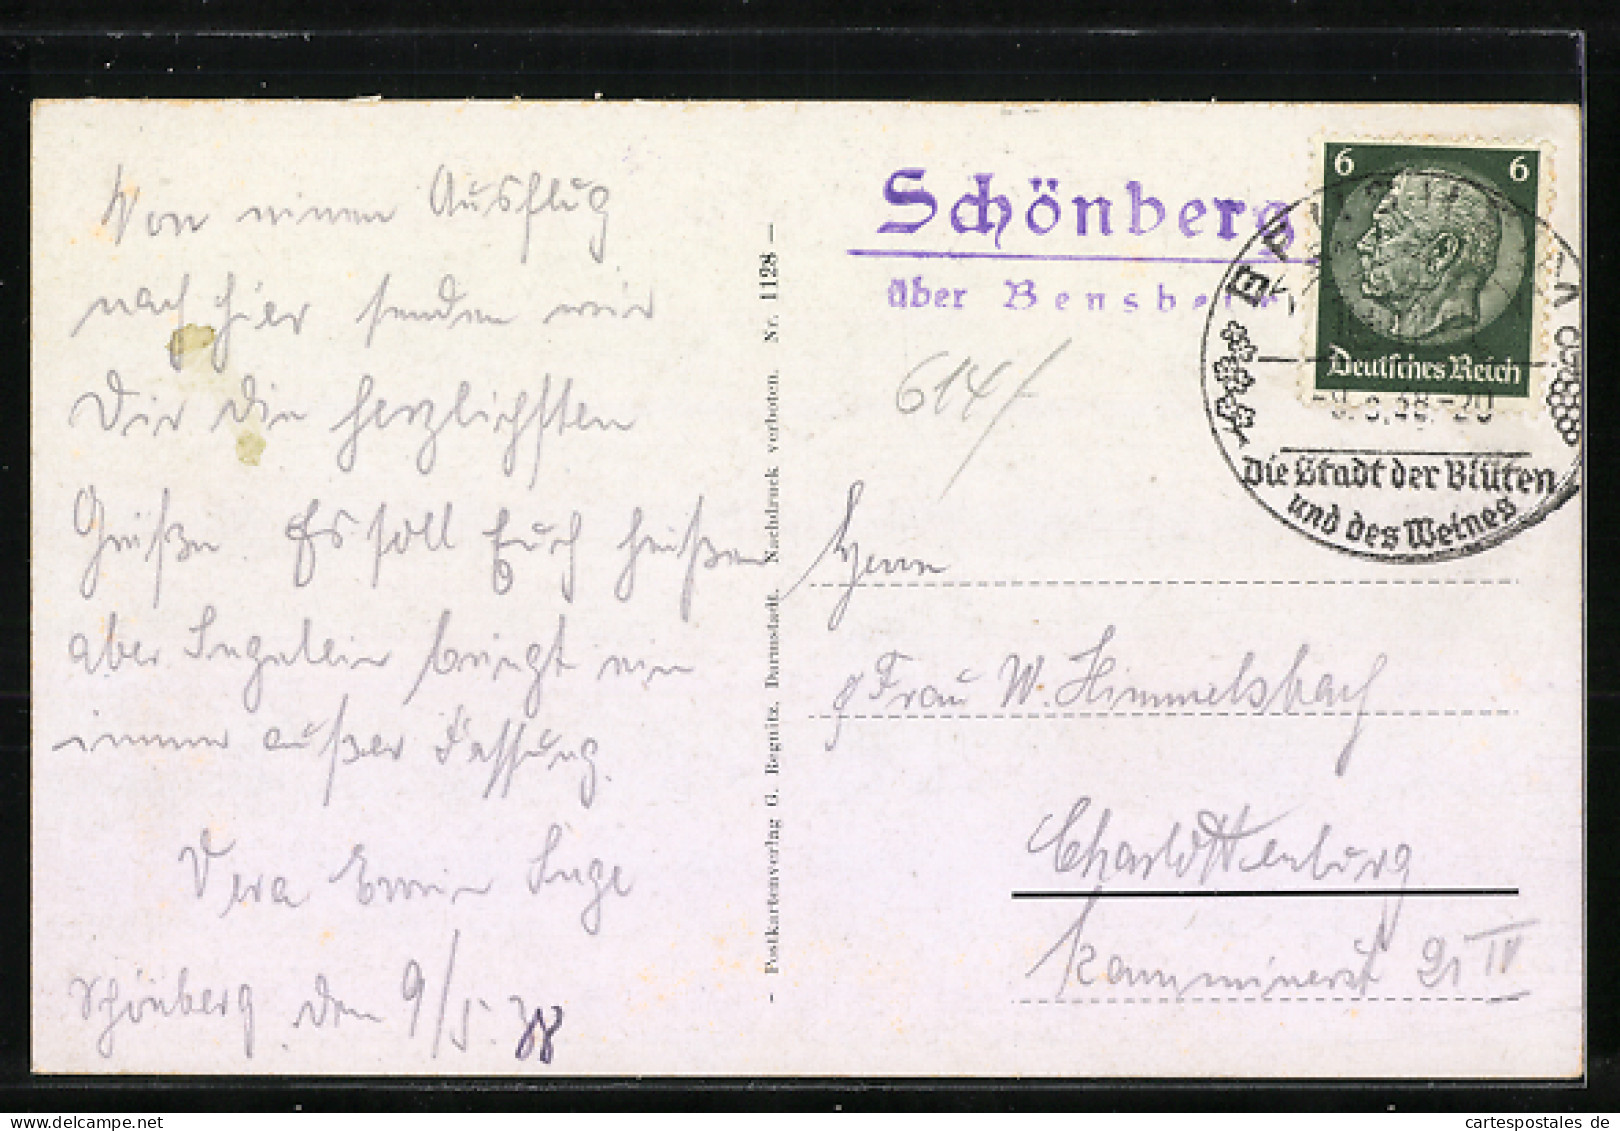 Von einem Ausflug
nach hier senden wir
Dir die herzlichsten
Grüße. Es soll Euch grüßen
aber Ingelein bringt ein
immer außer Fassung.
Vera Erwin Inge
Schönberg, den 9/5. 38
- Postkartenverlag G. Regnitz, Darmstadt. Nachdruck verboten. Nr. 1128 -
Schönberg
über Bensheim
6 6
Deutsches Reich
BENSHEIM
Die Stadt der Blüten
und des Weines
614/
Herrn
& Frau W. Himmelsbach
Charlottenburg
IV
cartespostales de